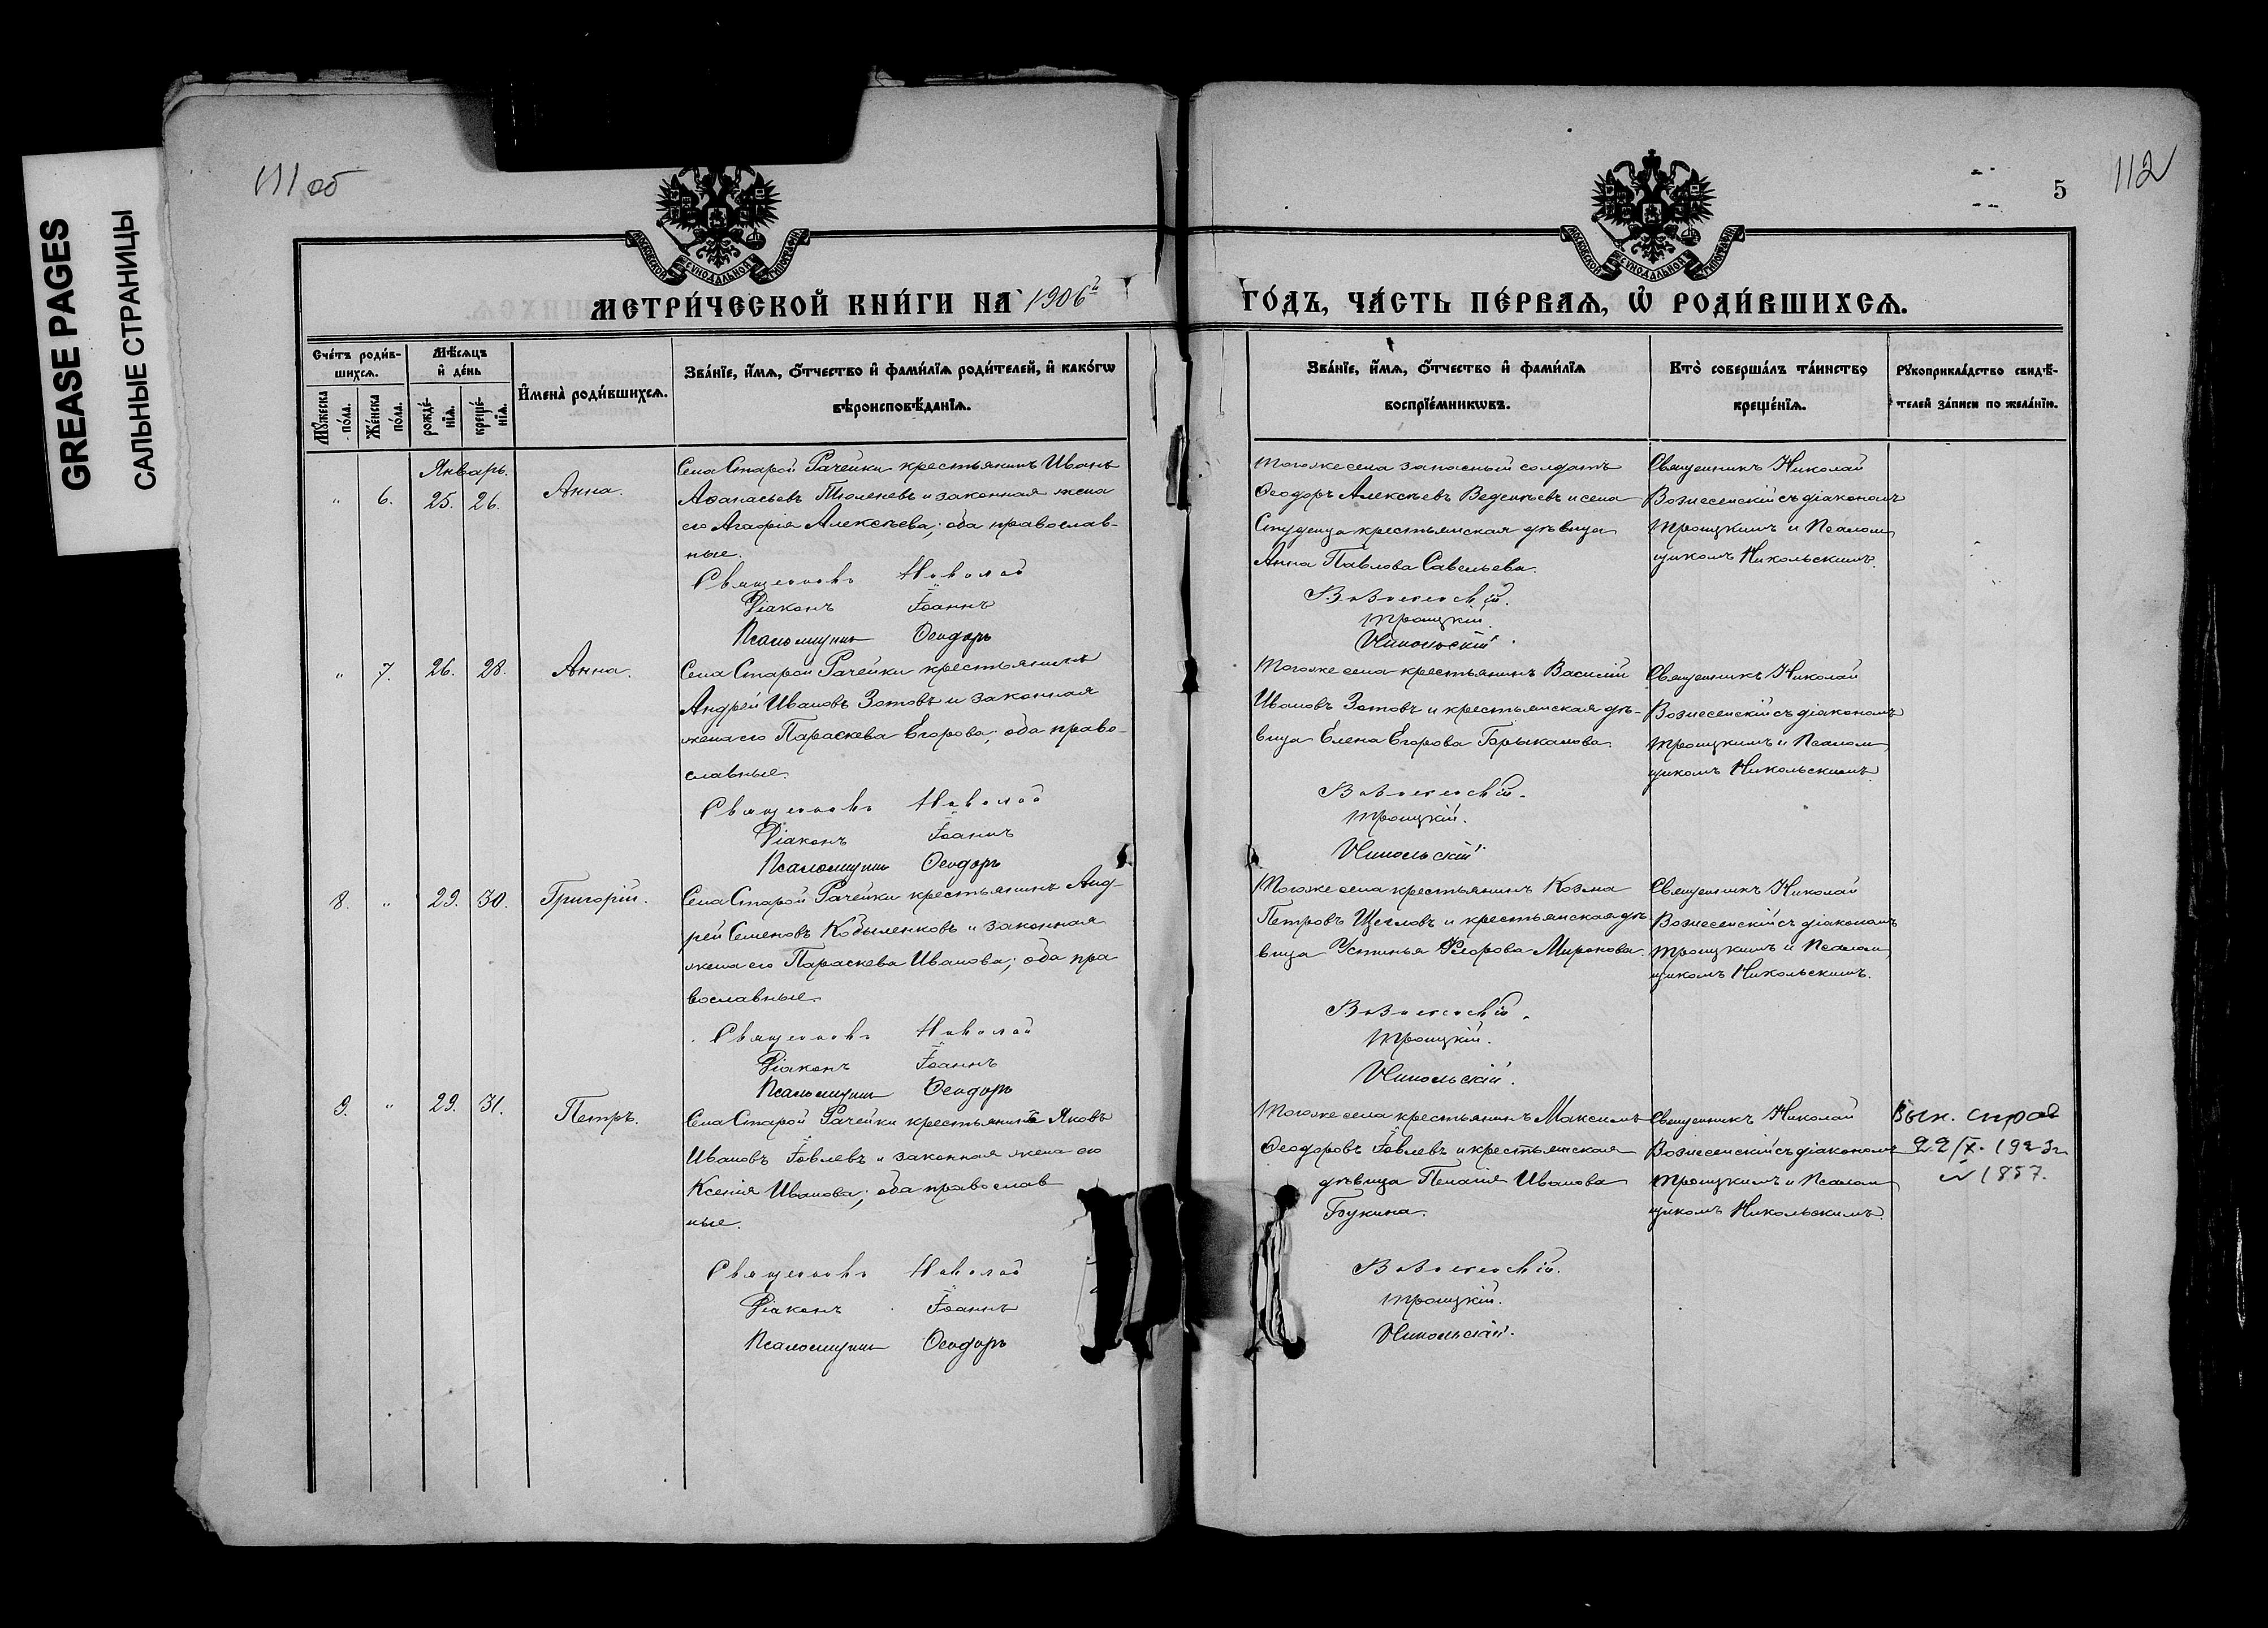 GREASE PAGES
САЛЬНЫЕ СТРАНИЦЫ
111 об
112
5
МОСКОВСКОЙ СѴНОДАЛЬНОЙ ТИПОГРАФІИ
МОСКОВСКОЙ СѴНОДАЛЬНОЙ ТИПОГРАФІИ
МЕТРИ́ЧЕСКОЙ КНИ́ГИ НА 1906й
ГО́ДЪ, ЧА́СТЬ ПЕ́РВАѦ, Ѡ҆ РОДИ́ВШИХСѦ.
Сче́тъ роди́в-
шихсѧ.
Мꙋжеска по́ла.
Же́нска по́ла.
Мѣ́сѧцъ
и҆ де́нь
рожде́-нїѧ.
креще́-нїѧ.
И҆мена̀ роди́вшихсѧ.
Зва́нїе, и҆́мѧ, ѻ҆́тчество и҆ фами́лїѧ роди́телей, и҆ како́гѡ
вѣроисповѣ́данїѧ.
Зва́нїе, и҆́мѧ, ѻ҆́тчество и҆ фами́лїѧ
воспрїе́мникѡвъ.
Кто̀ соверша́лъ та́инство
креще́нїѧ.
Рꙋкоприкла́дство свидѣ́-
телей за́писи по жела́нїю.
Январь.
" 6. 25. 26. Анна.
Села Старой Рачейки крестьянинъ Иванъ
Аѳанасьевъ Тюленевъ и законная жена
его Агафія Алексѣева; оба православ-
ные.
Священникъ Николай
Діаконъ Іоаннъ
Псаломщикъ Ѳеодоръ
Тогоже села запасный солдатъ
Ѳеодоръ Алексѣевъ Веденѣевъ и села
Студенца крестьянская дѣвица
Анна Павлова Савельева.
Вознесенскій.
Троицкій.
Никольскій.
Священникъ Николай
Вознесенскій съ діакономъ
Троицкимъ и Псалом
щикомъ Никольскимъ.
" 7. 26. 28. Анна.
Села Старой Рачейки крестьянинъ
Андрей Ивановъ Зотовъ и законная
жена его Параскева Егорова; оба право-
славные.
Священникъ Николай
Діаконъ Іоаннъ
Псаломщикъ Ѳеодоръ
Тогоже села крестьянинъ Василій
Ивановъ Зотовъ и крестьянская дѣ-
вица Елена Егорова
Вознесенскій.
Троицкій.
Никольскій
Священникъ Николай
Вознесенскій съ діакономъ
Троицкимъ и Псалом
щикомъ Никольскимъ.
8. " 29. 30. Григорій.
Села Старой Рачейки крестьянинъ Анд-
рей Семеновъ Кобыленковъ и законная
жена его Параскева Иванова; оба пра
вославные.
Священникъ Николай
Діаконъ Іоаннъ
Псаломщикъ Ѳеодоръ
Тогоже села крестьянинъ Козма
Петровъ Щегловъ и крестьянская дѣ-
вица Устинья Флорова Миронова.
Вознесенскій.
Троицкій.
Никольскій.
Священникъ Николай
Вознесенскій съ діакономъ
Троицкимъ и Псалом
щикомъ Никольскимъ.
9. " 29. 31. Петръ.
Села Старой Рачейки крестьянинъ Яковъ
Ивановъ Іовлевъ и законная жена его
Ксенія Иванова; оба православ
ные.
Священникъ Николай
Діаконъ Іоаннъ
Псаломщикъ Ѳеодоръ
Тогоже села крестьянинъ Максимъ
Ѳеодоровъ Іовлевъ и крестьянская
дѣвица Пелагія Иванова
Букина.
Вознесенскій.
Троицкій.
Никольскій.
Священникъ Николай
Вознесенскій съ діакономъ
Троицкимъ и Псалом
щикомъ Никольскимъ.
Вып. справ
22/X. 1923г
№ 1857.